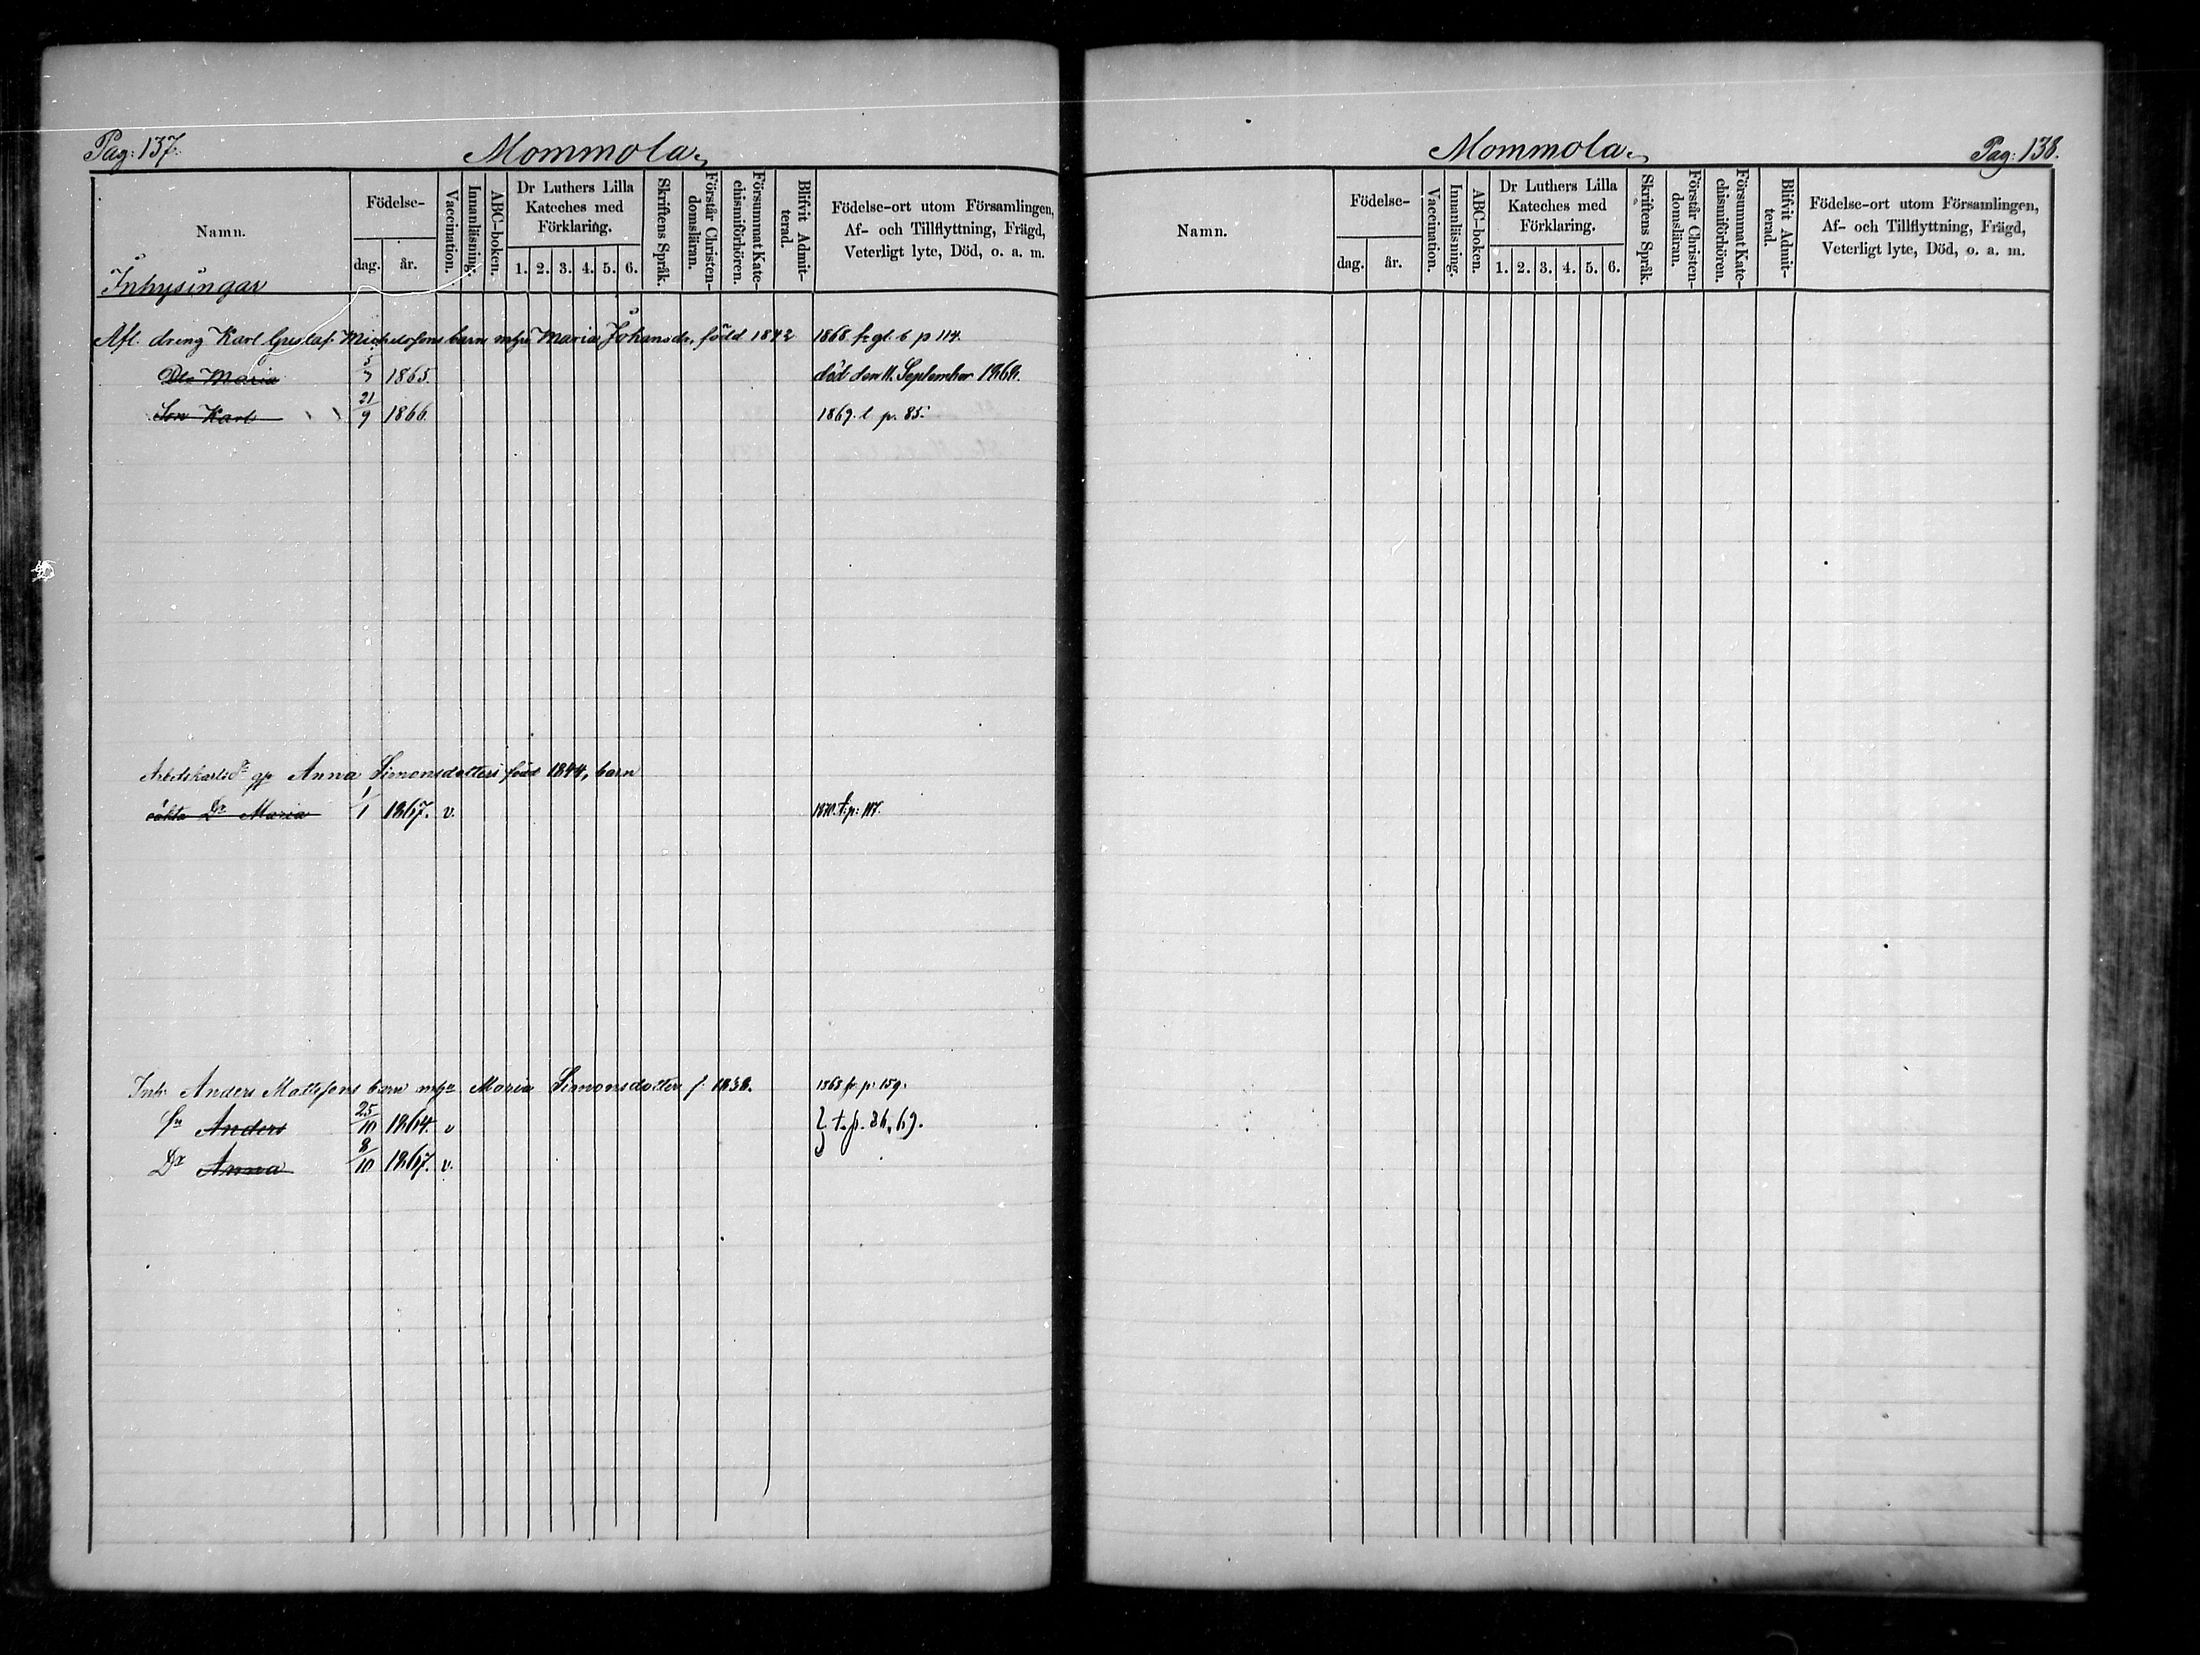 Pag: 137.
Mommola
Namn.
Födelse-
dag. år.
Vaccination.
Innanläsning.
ABC-boken.
Dr Luthers Lilla
Kateches med
Förklaring.
1. 2. 3. 4. 5. 6.
Skriftens Språk.
Förstår Christen-
domsläran.
Försummat Kate-
chismiförhören.
Blifvit Admit-
terad.
Födelse-ort utom Församlingen,
Af- och Tillflyttning, Frägd,
Veterligt lyte, Död, o. a. m.
Inhysingar
Afl. dreng Karl Gustaf Michelssons barn m hu Maria Johansdr. född 1842 1868 fr gl. b p 114.
Dtr Maria 5/7 1865. död den 11. September 1868.
Son Karl 21/9 1866. 1869. t p. 85.
Arbetskarlsdr gp Anna Simonsdotters född 1844, barn
oäkta Dr Maria 1/1 1867. v. 1870. t. p: 117.
Inh: Anders Mattssons barn m hu Maria Simonsdotter f: 1838. 1868 fr p: 159.
Sn Anders 25/10 1864. v } t. p. 36, 69.
Dr Anna 8/10 1867. v.
Mommola
Pag: 138.
Namn.
Födelse-
dag. år.
Vaccination.
Innanläsning.
ABC-boken.
Dr Luthers Lilla
Kateches med
Förklaring.
1. 2. 3. 4. 5. 6.
Skriftens Språk.
Förstår Christen-
domsläran.
Försummat Kate-
chismiförhören.
Blifvit Admit-
terad.
Födelse-ort utom Församlingen,
Af- och Tillflyttning, Frägd,
Veterligt lyte, Död, o. a. m.